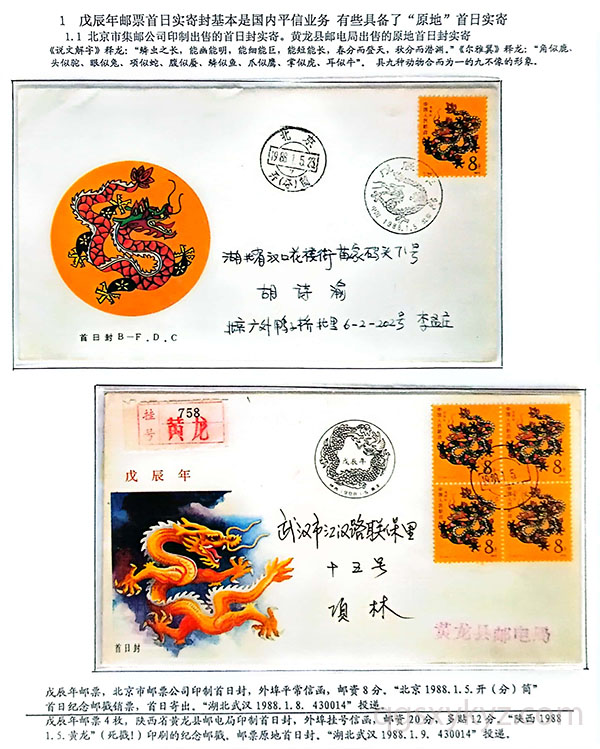 1 戊辰年邮票首日实寄封基本是国内平信业务 有些具备了“原地”首日实寄
1.1 北京市集邮公司印制出售的首日封实寄。黄龙县邮电局出售的原地首日封实寄
《说文解字》释龙：“鳞虫之长，能幽能明，能细能巨，能短能长，春分而登天，秋分而潜渊。”《尔雅翼》释龙：“角似鹿、
头似驼、眼似兔、项似蛇、腹似蜃、鳞似鱼、爪似鹰、掌似虎、耳似牛”。 具九种动物合而为一的九不像的形象。
北京
1988.1.5.23
开(分)筒
8分
中国 1988.1.5 北京
湖北省汉口花楼街苗家码头71号
胡诗瀹
北京广外鸭子桥北里6-2-202号 李孟庄
首日封 B-F.D.C
挂号
758
黄龙
戊辰年
戊辰年
8分
8分
8分
8分
武汉市江汉路联保里
十五号
项林
黄龙县邮电局
首日封
戊辰年邮票，北京市邮票公司印制首日封，外埠平常信函，邮资8分。“北京1988.1.5.开（分）筒”
首日纪念邮戳销票，首日寄出。“湖北武汉1988.1.8. 430014”投递。
戊辰年邮票4枚，陕西省黄龙县邮电局印制首日封，外埠挂号信函，邮资20分，多贴12分。“陕西1988
1.5.黄龙”（死戳！）印刷的纪念邮戳，邮票原地首日封。“湖北武汉1988.1.9. 430014”投递。